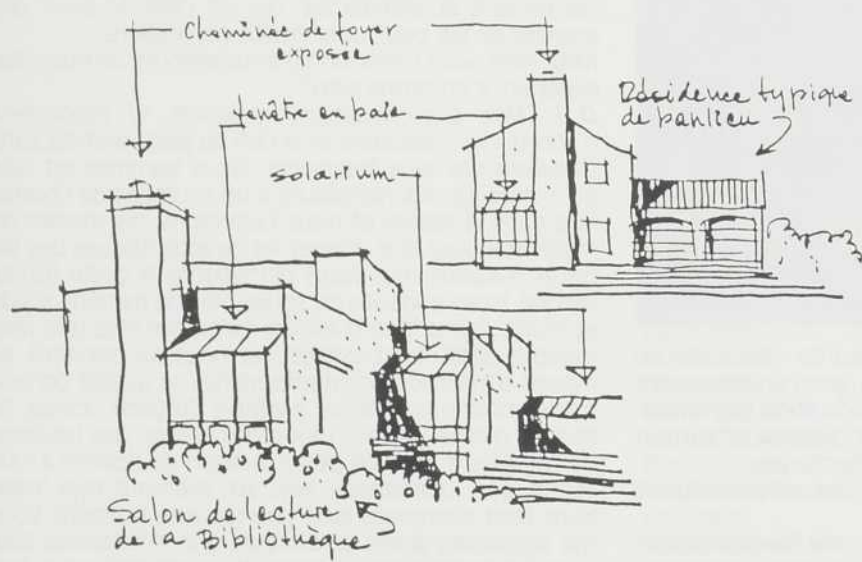 Cheminée de foyer
exposée
fenêtre en baie
solarium
Résidence typique
de banlieu
Salon de lecture
de la Bibliothèque